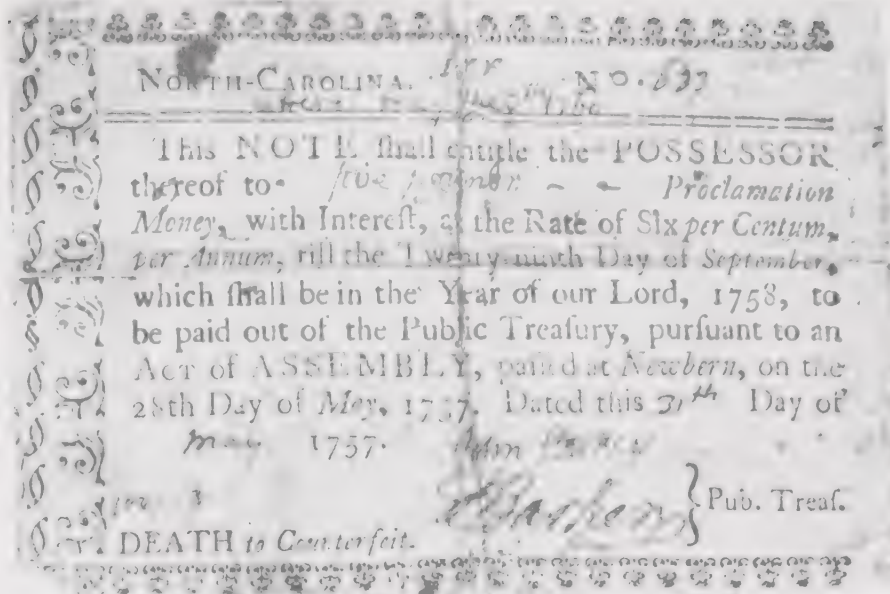 NORTH-CAROLINA. No.
This NOTE ſhall entitle the POSSESSOR
thereof to Proclamation
Money, with Intereſt, at the Rate of Six per Centum,
per Annum, till the Twenty-ninth Day of September,
which ſhall be in the Year of our Lord, 1758, to
be paid out of the Public Treaſury, purſuant to an
Act of ASSEMBLY, paſſed at Newbern, on the
28th Day of May, 1757. Dated this 31th Day of
may 1757. John
Pub. Treaſ.
DEATH to Counterfeit.